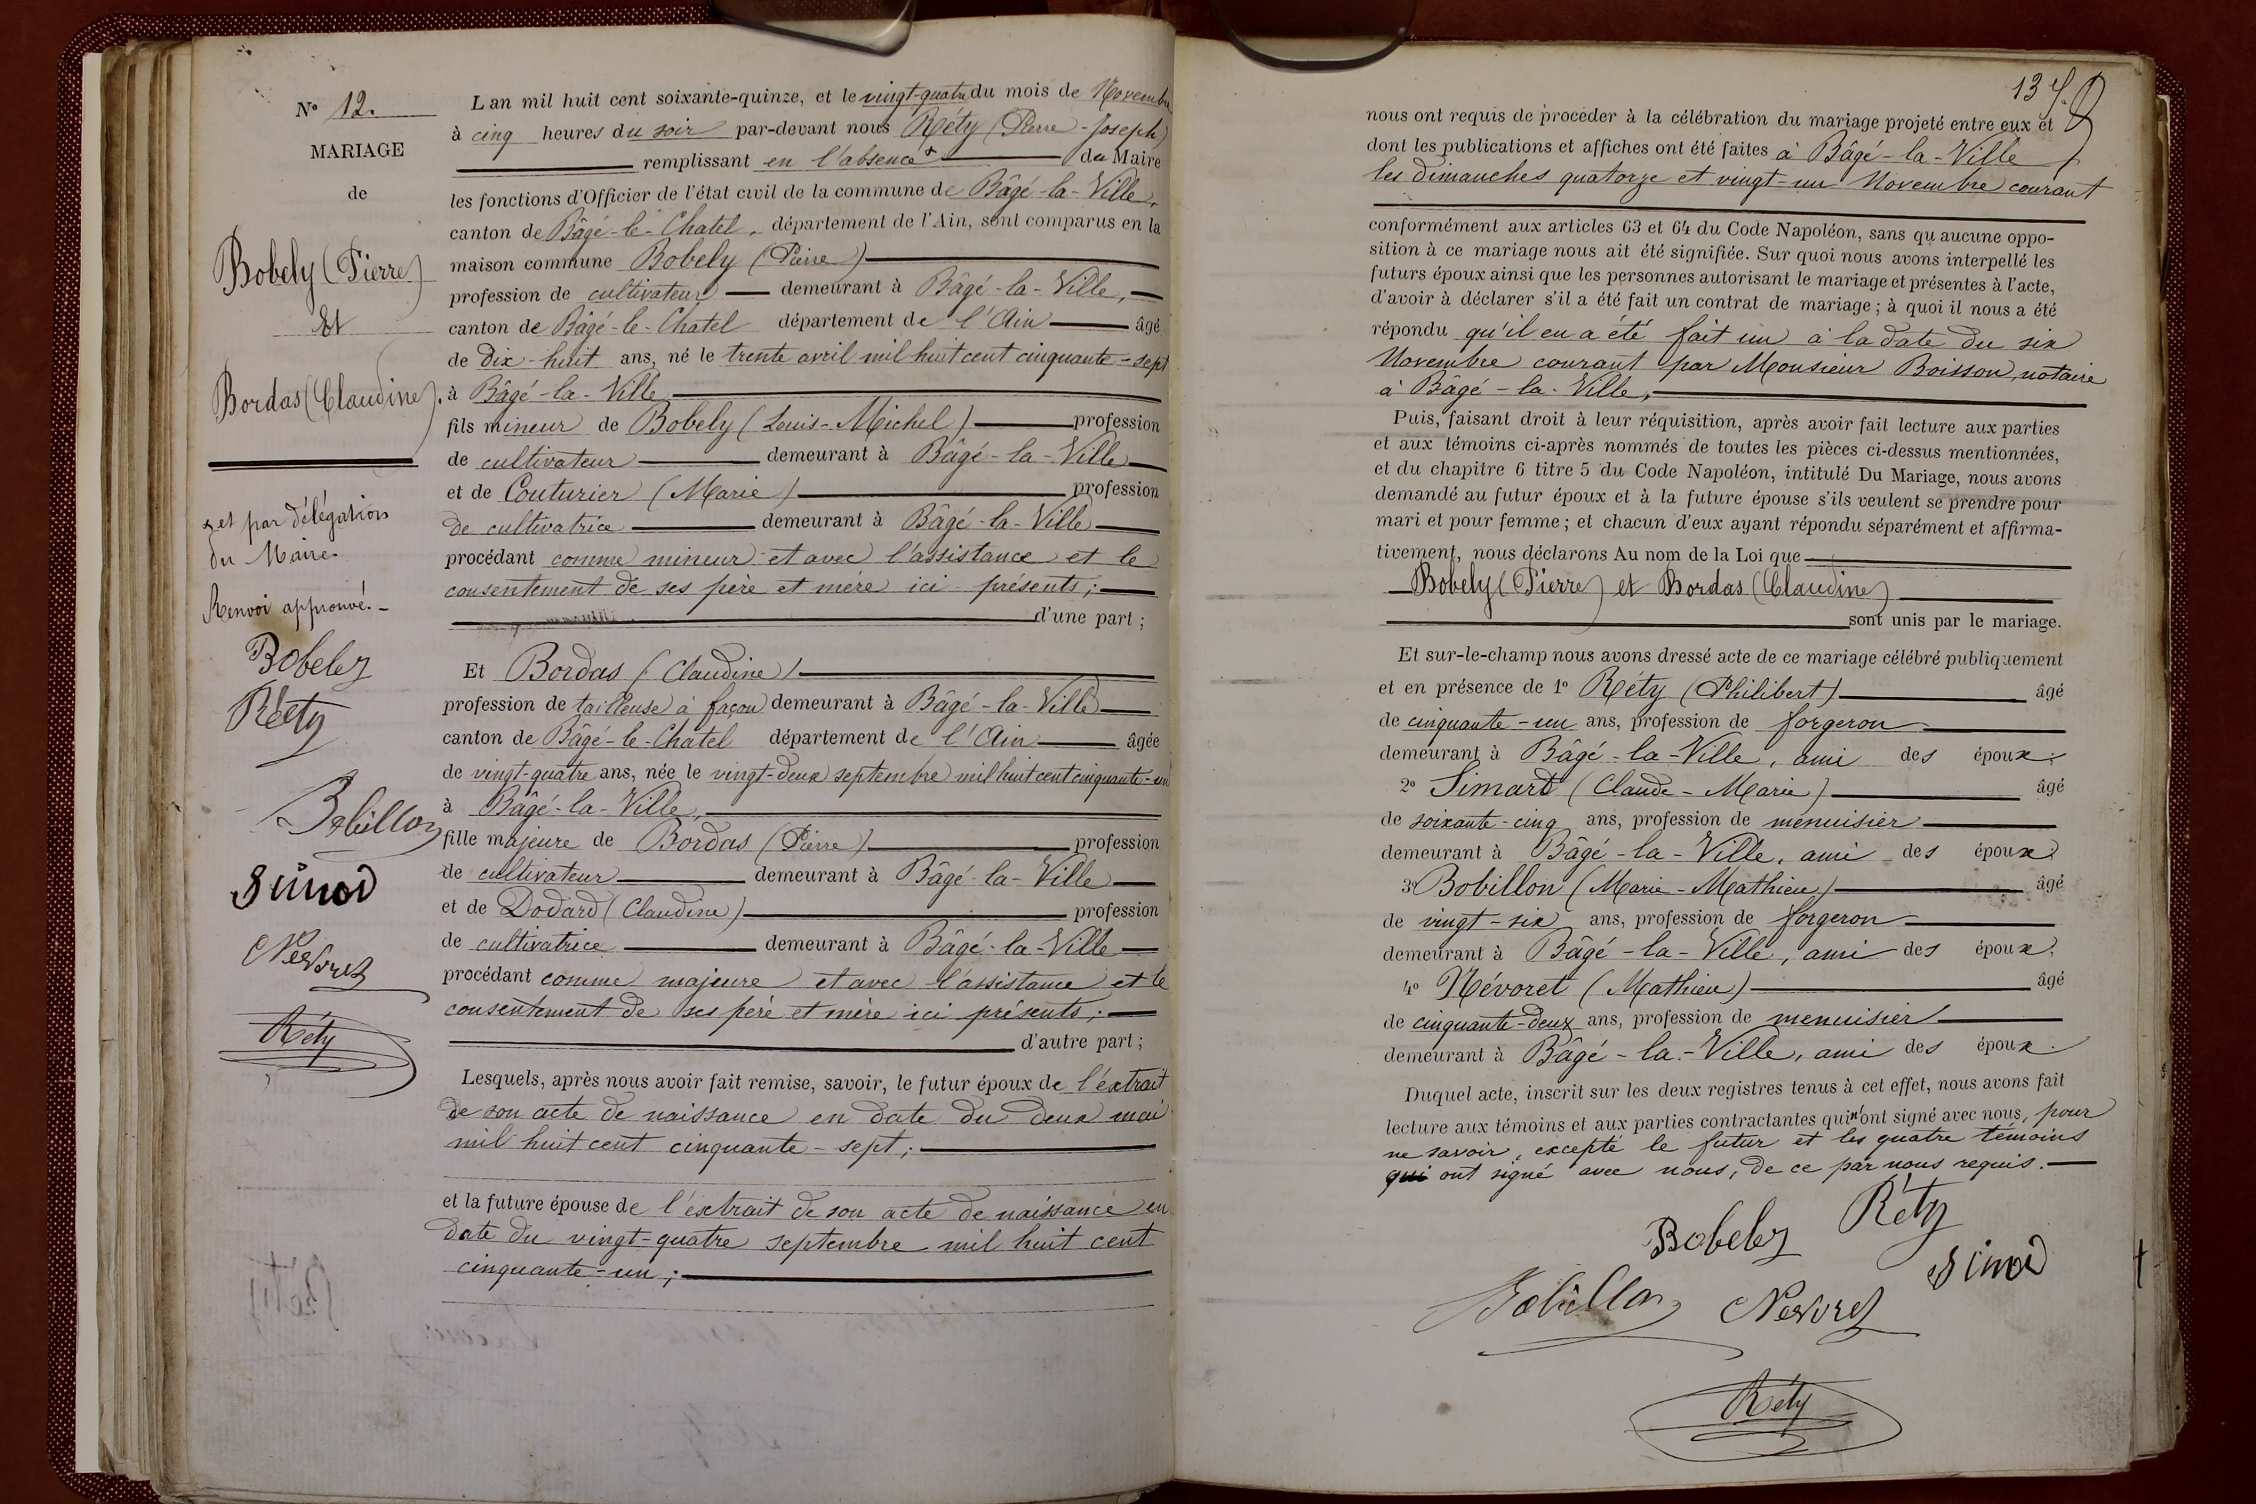 N° 12.
MARIAGE
de
Bobely (Pierre)
Et
Bordas (Claudine).
x et par délégation
du Maire.
Renvoi approuvé. -
Bobely
Réty
Bobillon
Simod
Nevoret
Réty
L an mil huit cent soixante-quinze, et le vingt-quatre du mois de Novembre
à cinq heures du soir par-devant nous Réty (Pierre-Joseph)
remplissant en l'absence x du Maire
les fonctions d'Officier de l'état civil de la commune de Bâgé-la-Ville,
canton de Bâgé-le-Chatel, département de l'Ain, sont comparus en la
maison commune Bobely (Pierre)
profession de cultivateur demeurant à Bâgé-la-Ville,
canton de Bâgé-le-Chatel département de l'Ain âgé
de dix-huit ans, né le trente avril mil huit cent cinquante-sept
à Bâgé-la-Ville
fils mineur de Bobely (Louis-Michel) profession
de cultivateur demeurant à Bâgé-la-Ville
et de Couturier (Marie) profession
de cultivatrice demeurant à Bâgé-la-Ville
procédant comme mineur et avec l'assistance et le
consentement de ses père et mère ici présents;
d'une part;
Et Bordas (Claudine)
profession de tailleuse à façon demeurant à Bâgé-la-Ville
canton de Bâgé-le-Chatel département de l'Ain âgée
de vingt-quatre ans, née le vingt-deux septembre mil huit cent cinquante-un
à Bâgé-la-Ville,
fille majeure de Bordas (Pierre) profession
de cultivateur demeurant à Bâgé-la-Ville
et de Dodard (Claudine) profession
de cultivatrice demeurant à Bâgé-la-Ville
procédant comme majeure et avec l'assistance et le
consentement de ses père et mère ici présents;
d'autre part;
Lesquels, après nous avoir fait remise, savoir, le futur époux de l'extrait
de son acte de naissance en date du deux mai
mil huit cent cinquante-sept;
et la future épouse de l'extrait de son acte de naissance en
date du vingt-quatre septembre mil huit cent
cinquante-un;
nous ont requis de procéder à la célébration du mariage projeté entre eux et
dont les publications et affiches ont été faites à Bâgé-la-Ville
les dimanches quatorze et vingt-un Novembre courant
conformément aux articles 63 et 64 du Code Napoléon, sans qu aucune oppo-
sition à ce mariage nous ait été signifiée. Sur quoi nous avons interpellé les
futurs époux ainsi que les personnes autorisant le mariage et présentes à l'acte,
d'avoir à déclarer s'il a été fait un contrat de mariage; à quoi il nous a été
répondu qu'il en a été fait un à la date du six
Novembre courant par Monsieur Boisson, notaire
à Bâgé-la-Ville,
Puis, faisant droit à leur réquisition, après avoir fait lecture aux parties
et aux témoins ci-après nommés de toutes les pièces ci-dessus mentionnées,
et du chapitre 6 titre 5 du Code Napoléon, intitulé Du Mariage, nous avons
demandé au futur époux et à la future épouse s'ils veulent se prendre pour
mari et pour femme; et chacun d'eux ayant répondu séparément et affirma-
tivement, nous déclarons Au nom de la Loi que
Bobely (Pierre) et Bordas (Claudine)
sont unis par le mariage.
Et sur-le-champ nous avons dressé acte de ce mariage célébré publiquement
et en présence de 1° Réty (Philibert) âgé
de cinquante-un ans, profession de forgeron
demeurant à Bâgé-la-Ville, ami des époux.
2° Simard (Claude-Marie) âgé
de soixante-cinq ans, profession de menuisier
demeurant à Bâgé-la-Ville, ami des époux.
3° Bobillon (Marie-Mathieu) âgé
de vingt-six ans, profession de forgeron
demeurant à Bâgé-la-Ville, ami des époux.
4° Névoret (Mathieu) âgé
de cinquante-deux ans, profession de menuisier
demeurant à Bâgé-la-Ville, ami des époux.
Duquel acte, inscrit sur les deux registres tenus à cet effet, nous avons fait
lecture aux témoins et aux parties contractantes qui n'ont signé avec nous, pour
ne savoir, excepté le futur et les quatre témoins
qui ont signé avec nous, de ce par nous requis.
Bobely Réty
Simod
Bobillon Nevoret
Réty